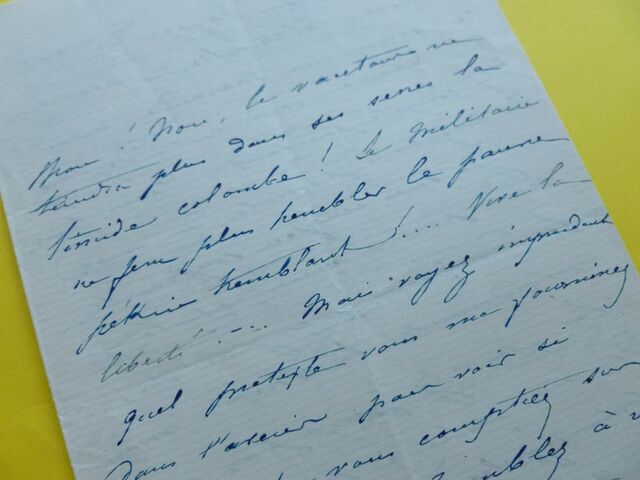 Non ! Non, le vautour ne
tiendra plus dans ses serres la
timide colombe ! Le militaire
ne fera plus trembler le pauvre
pékin tremblant ! ... Vive la
liberté ! ... Mais voyez imprudent
quel prétexte vous me fournirez
Dans l'avenir pour voir si
vous comptiez sur
à